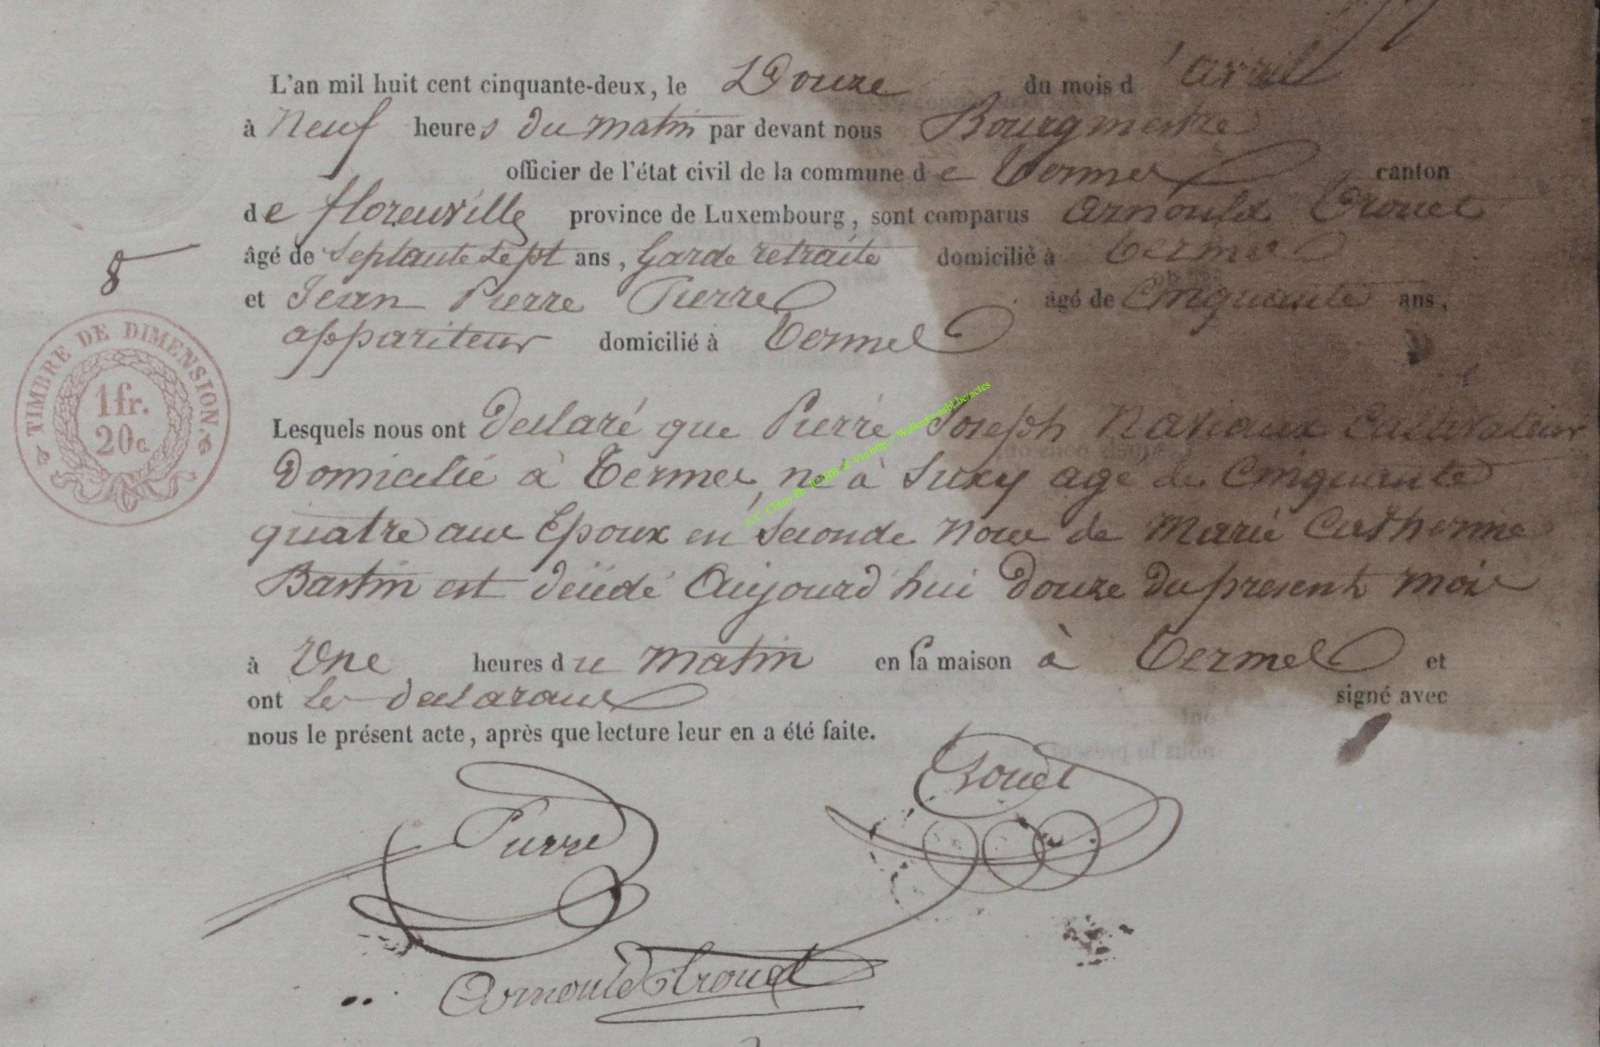 L'an mil huit cent cinquante-deux, le Douze du mois d'avril
à Neuf heures du matin par devant nous Bourgmestre
officier de l'état civil de la commune de termes canton
de florenville province de Luxembourg, sont comparus Arnould Crouet
âgé de Septante Sept ans, Garde retraite domicilié à termes
et Jean Pierre Pierre âgé de Cinquante ans,
appariteur domicilié à termes
8
TIMBRE DE DIMENSION
1fr.
20c
Lesquels nous ont Declaré que Pierre Joseph Nahoux Cultivateur
Domicilié à termes, né à Suxy agé de Cinquante
quatre ans Epoux en Seconde Noce de Marie Catherine
Bastin est décédé Aujourd'hui Douze Du present mois
à Une heures du matin en sa maison à termes et
ont les declarans signé avec
nous le présent acte, après que lecture leur en a été faite.
Crouet
Pierre
Arnould Crouet